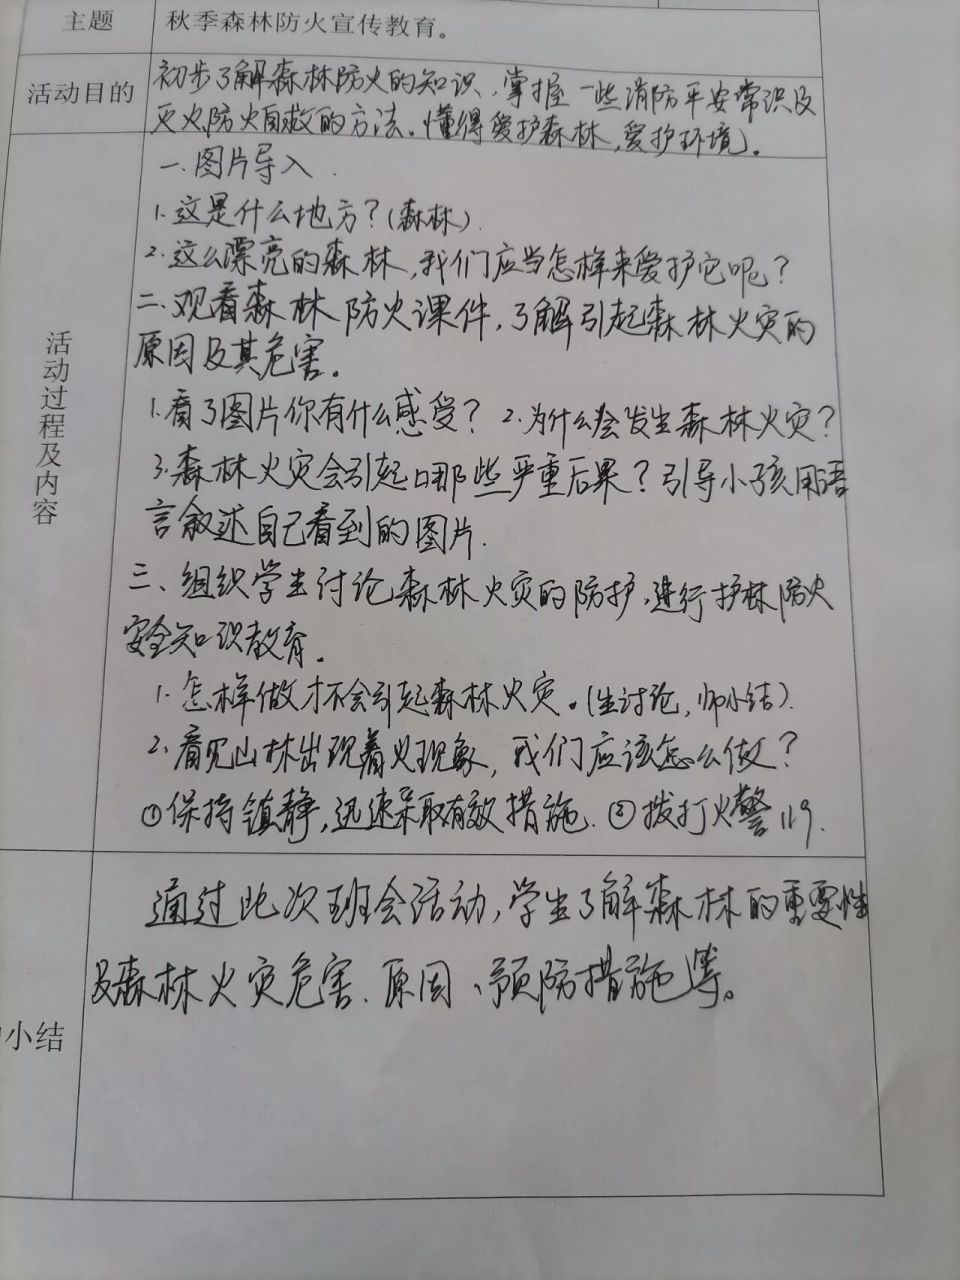 主题
秋季森林防火宣传教育。
活动目的
初步了解森林防火的知识、掌握一些消防平安常识及
灭火、防火自救的方法。懂得爱护森林,爱护环境。
活动过程及内容
一、图片导入.
1.这是什么地方?(森林)
2.这么漂亮的森林,我们应当怎样来爱护它呢?
二、观看森林防火课件,了解引起森林火灾的
原因及其危害。
1.看了图片你有什么感受? 2.为什么会发生森林火灾?
3.森林火灾会引起哪些严重后果?引导小孩用语
言叙述自己看到的图片.
三、组织学生讨论森林火灾的防护,进行护林防火
安全知识教育。
1.怎样做才不会引起森林火灾。(生讨论,师小结)
2.看见山林出现着火现象,我们应该怎么做?
①保持镇静,迅速采取有效措施.②拨打火警119.
小结
通过此次班会活动,学生了解森林的重要性
及森林火灾危害、原因、预防措施等。